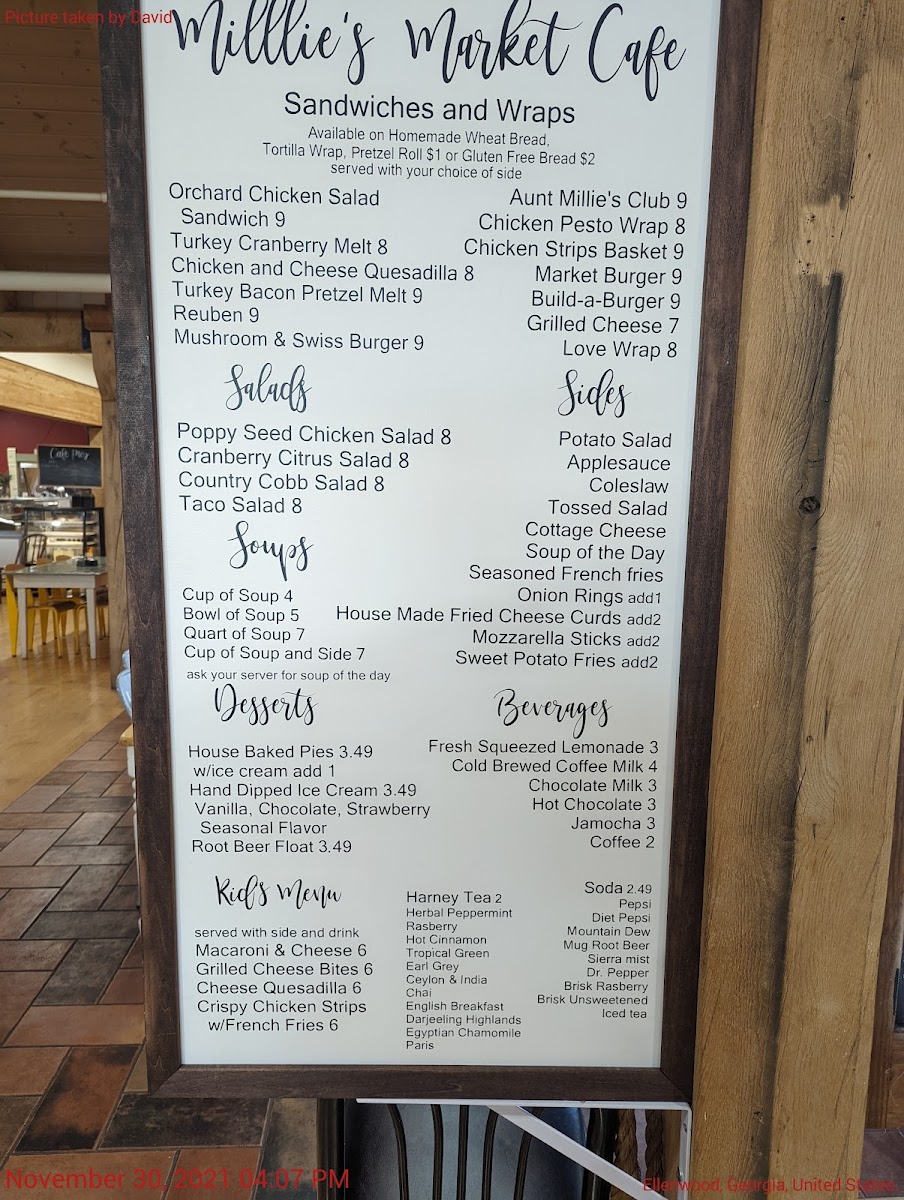 Picture taken by David
Milllie's Market Cafe
Sandwiches and Wraps
Available on Homemade Wheat Bread,
Tortilla Wrap, Pretzel Roll $1 or Gluten Free Bread $2
served with your choice of side
Orchard Chicken Salad
Sandwich 9
Turkey Cranberry Melt 8
Chicken and Cheese Quesadilla 8
Turkey Bacon Pretzel Melt 9
Reuben 9
Mushroom & Swiss Burger 9
Aunt Millie's Club 9
Chicken Pesto Wrap 8
Chicken Strips Basket 9
Market Burger 9
Build-a-Burger 9
Grilled Cheese 7
Love Wrap 8
Salads
Poppy Seed Chicken Salad 8
Cranberry Citrus Salad 8
Country Cobb Salad 8
Taco Salad 8
Sides
Potato Salad
Applesauce
Coleslaw
Tossed Salad
Cottage Cheese
Soup of the Day
Seasoned French fries
Onion Rings add1
House Made Fried Cheese Curds add2
Mozzarella Sticks add2
Sweet Potato Fries add2
Soups
Cup of Soup 4
Bowl of Soup 5
Quart of Soup 7
Cup of Soup and Side 7
ask your server for soup of the day
Desserts
House Baked Pies 3.49
w/ice cream add 1
Hand Dipped Ice Cream 3.49
Vanilla, Chocolate, Strawberry
Seasonal Flavor
Root Beer Float 3.49
Beverages
Fresh Squeezed Lemonade 3
Cold Brewed Coffee Milk 4
Chocolate Milk 3
Hot Chocolate 3
Jamocha 3
Coffee 2
Kid's Menu
served with side and drink
Macaroni & Cheese 6
Grilled Cheese Bites 6
Cheese Quesadilla 6
Crispy Chicken Strips
w/French Fries 6
Harney Tea 2
Herbal Peppermint
Rasberry
Hot Cinnamon
Tropical Green
Earl Grey
Ceylon & India
Chai
English Breakfast
Darjeeling Highlands
Egyptian Chamomile
Paris
Soda 2.49
Pepsi
Diet Pepsi
Mountain Dew
Mug Root Beer
Sierra mist
Dr. Pepper
Brisk Rasberry
Brisk Unsweetened
Iced tea
Cafe Menu
November 30, 2021 04:07 PM
Ellenwood, Georgia, United States